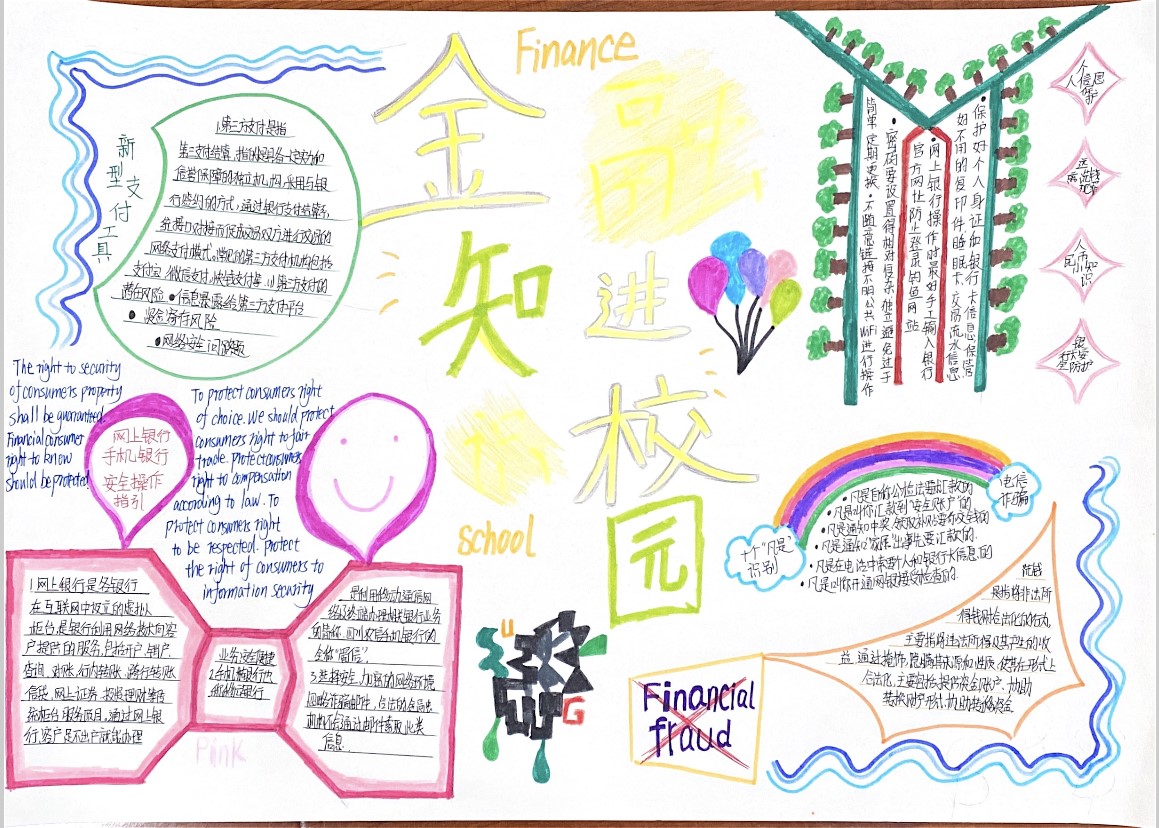 Finance
金融
知识
进
校
园
school
新型支付工具
1.第三方支付是指
信誉保障的独立机构,采用与银
行签约的方式,通过银行支付结算系
网络支付模式,常见的第三方支付机构包括
支付宝、微信支付、快钱支付等
潜在风险 ●信息暴露给第三方支付平台
●资金寄存风险
●网络安全问题
The right to security
of consumers property
shall be guaranteed.
Financial consumer
right to know
should be protected
网上银行
手机银行
安全操作
指引
To protect consumers right
of choice. We should protect
consumers right to fair
trade. protect consumers
right to compensation
according to law. To
protect consumers right
to be respected. protect
the right of consumers to
information security
1网上银行是各银行
在互联网中设立的虚拟
柜台,是银行利用网络技术向客
户提供的服务,包括开户、销户
查询、对账、行内转账、跨行转账
信贷、网上证券、投资理财等传
统柜台服务项目,通过网上银
行,客户足不出户就能办理
业务安全便捷
2手机银行
是利用移动通信网
络及终端办理相关银行业务
的简称,可以收看手机银行的
全称"短信"
3选择安全、加密的网络环境
信息
Pink
UG
Financial
fraud
保护好个人身证和银行卡信息保管
好不用的复印件睡眠卡、交易流水信息
●网上银行操作时最好手工输入银行
官方网址防止登录钓鱼网站
●密码要设置得相对复杂独立避免过于
简单定期更换●不随意链接不明公共WiFi进行操作
个人信息保护
人民币小知识
银行卡安全防护
十个"凡是"
识别
电信
诈骗
●凡是自称公检法要求汇款的
●凡是叫你汇款到"安全账户"的
●凡是通知中奖、领取补贴要你交钱的
●凡是通知"家属"出事先要汇款的
●凡是在电话中索要个人和银行卡信息的
●凡是叫你开通网银接受检查的
洗钱
是指将非法所
得钱财合法化的行为
主要指将违法所得及其产生的收
益,通过掩饰、隐瞒其来源和性质,使其在形式上
合法化,主要包括提供资金账户、协助
转换财产形式、协助转移资金